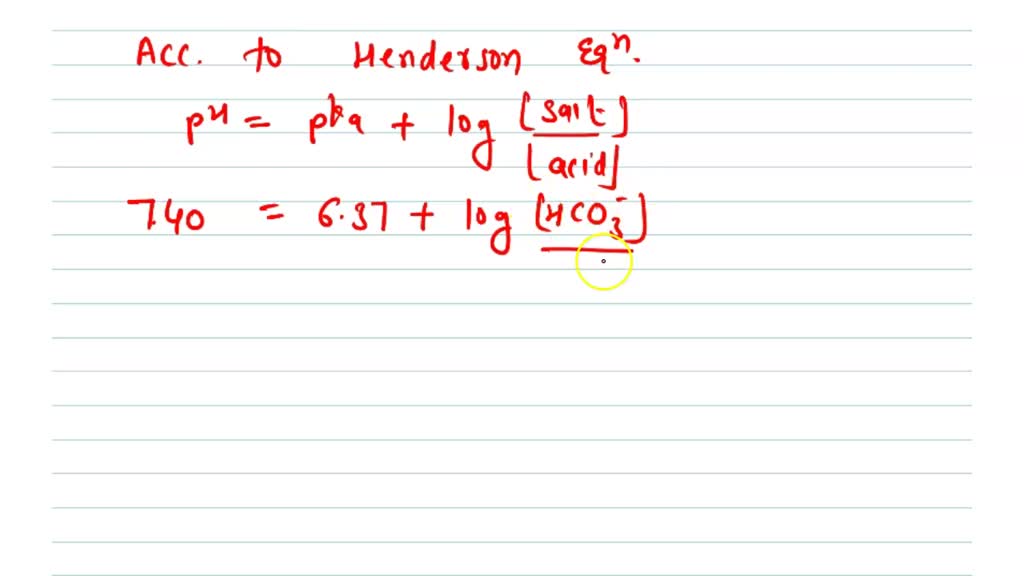 Acc. to Henderson Eqn.
pH = pka + log [salt]
[acid]
7.40 = 6.37 + log [HCO3-]